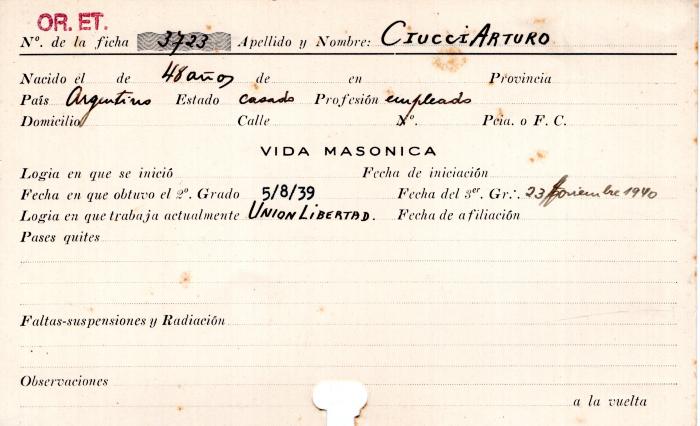 OR. ET.
Nº. de la ficha 3723 Apellido y Nombre: CIUCCI ARTURO
Nacido el de 48 años de en Provincia
País Argentino Estado casado Profesión empleado
Domicilio Calle Nº. Pcia. o F. C.
VIDA MASONICA
Logia en que se inició Fecha de iniciación
Fecha en que obtuvo el 2º. Grado 5/8/39 Fecha del 3er. Gr∴. 23 Noviembre 1940
Logia en que trabaja actualmente UNION LIBERTAD. Fecha de afiliación
Pases quites
Faltas-suspensiones y Radiación
Observaciones
a la vuelta